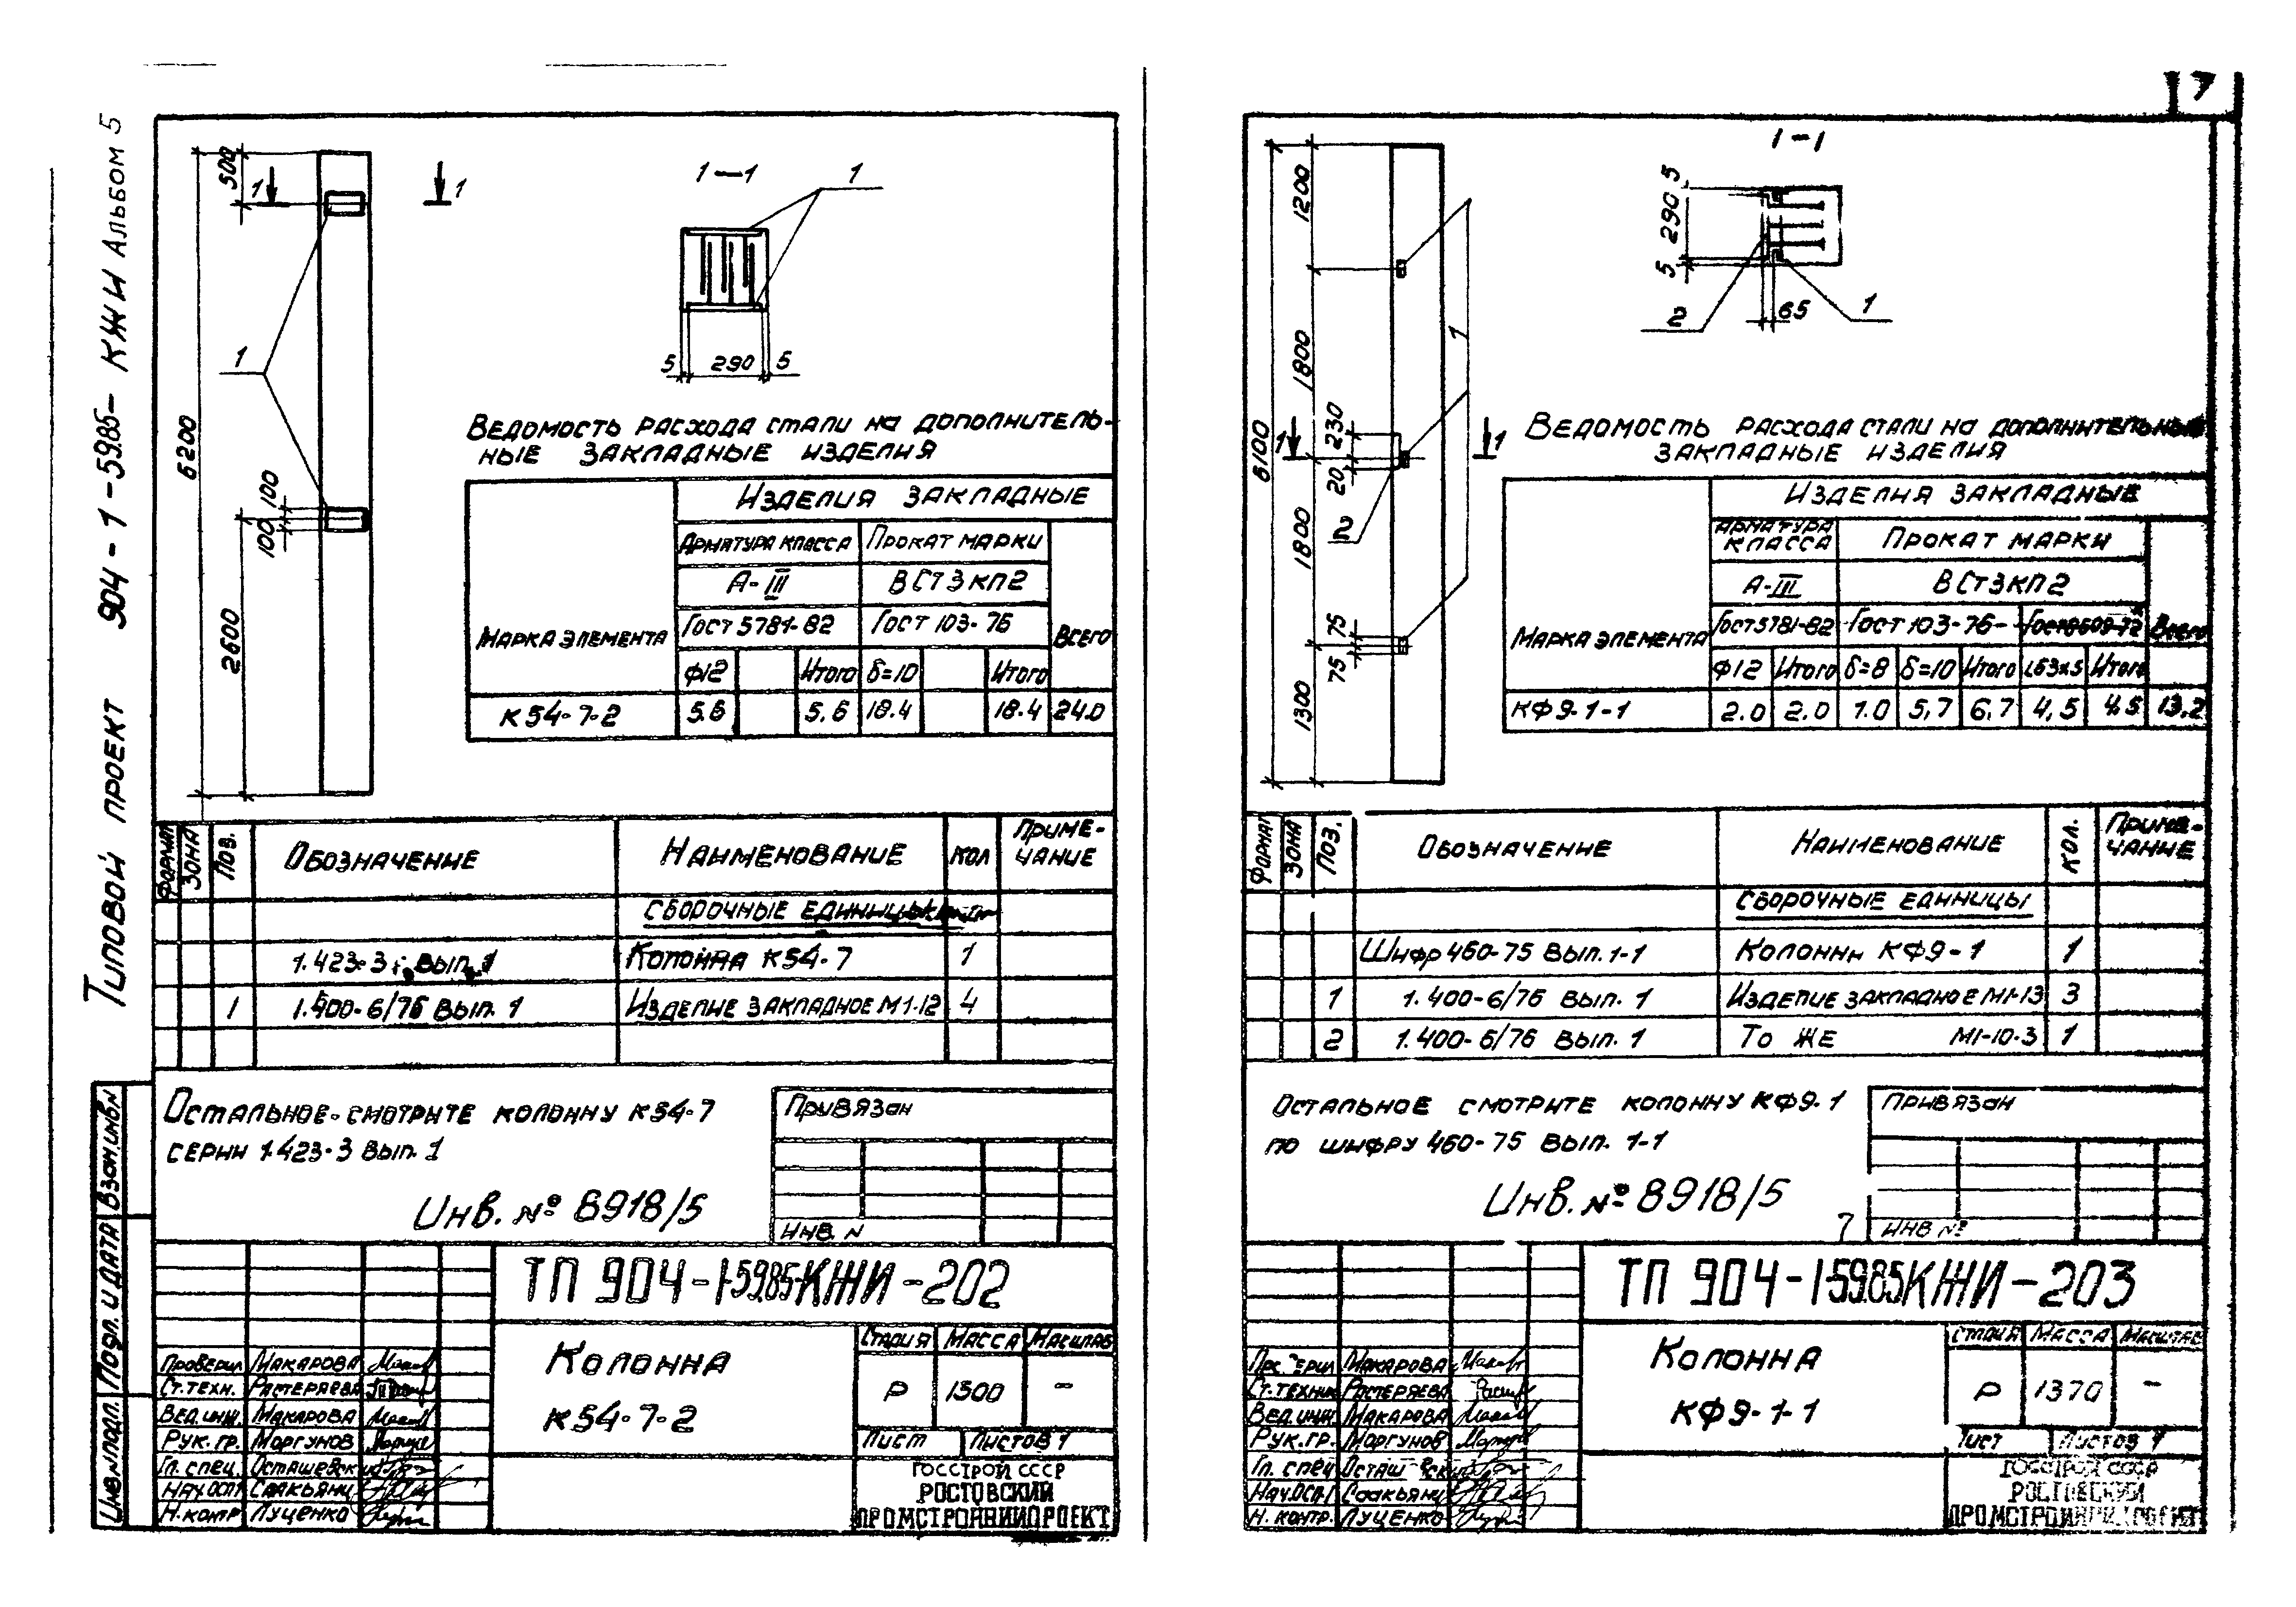 7
Типовой проект 904-1-59.85- КЖИ Альбом 5
500
1
1
6200
1
100
100
2600
1-1
1
5 290 5
Ведомость расхода стали на дополнитель-
ные закладные изделия
Марка элемента
Изделия закладные
Арматура класса Прокат марки
А-III ВСт3кп2
Гост 5781-82 Гост 103-76 Всего
ф12 Итого δ=10 Итого
К54-7-2 5.6 5.6 18.4 18.4 24.0
Формат Зона Поз. Обозначение Наименование Кол Приме-
чание
Сборочные единицы
1.423-3; вып. 1 Колонна К54-7 1
1 1.400-6/76 вып. 1 Изделие закладное М1-12 4
Остальное-смотрите колонну К54-7
серии 1.423-3 вып. 1
Инв. № 8918/5
Привязан
Инв. N
ТП 904-1-59.85КЖИ-202
Колонна
К54-7-2
Стадия Масса Масштаб
Р 1300 –
Лист Листов 1
ГОССТРОЙ СССР
РОСТОВСКИЙ
ПРОМСТРОЙНИИПРОЕКТ
Проверил Макарова
Ст.техн. Растеряева
Вед.инж. Макарова
Рук. гр. Моргунов
Гл. спец. Осташевский
Нач.ОСП1 Саакьянц
Н.контр Луценко
Инв.N подл. Подп. и дата Взам.инв.N
1200
1800
6100
1 1
230
20
2
1800
75
75
1300
1
1-1
5
290
5
2
65
1
Ведомость расхода стали на дополнительные
закладные изделия
Марка элемента
Изделия закладные
Арматура
класса Прокат марки
А-III ВСт3кп2
Гост 5781-82 Гост 103-76 Гост 8509-72 Всего
ф12 Итого δ=8 δ=10 Итого L63х5 Итого
КФ9-1-1 2.0 2.0 1.0 5,7 6,7 4,5 4,5 13.2
Формат Зона Поз. Обозначение Наименование Кол. Приме-
чание
Сборочные единицы
Шифр 460-75 вып. 1-1 Колонны КФ9-1 1
1 1.400-6/76 вып. 1 Изделие закладное М1-13 3
2 1.400-6/76 вып. 1 То же М1-10-3 1
Остальное смотрите колонну КФ9-1
по шифру 460-75 вып. 1-1
Инв. № 8918/5 7
Привязан
Инв №
ТП 904-1-59.85КЖИ-203
Колонна
КФ9-1-1
Стадия Масса Масштаб
Р 1370 –
Лист Листов 1
ГОССТРОЙ СССР
РОСТОВСКИЙ
ПРОМСТРОЙНИИПРОЕКТ
Проверил Макарова
Ст.техник Растеряева
Вед.инж. Макарова
Рук.гр. Моргунов
Гл. спец Осташевский
Нач.ОСП-1 Саакьянц
Н. контр. Луценко